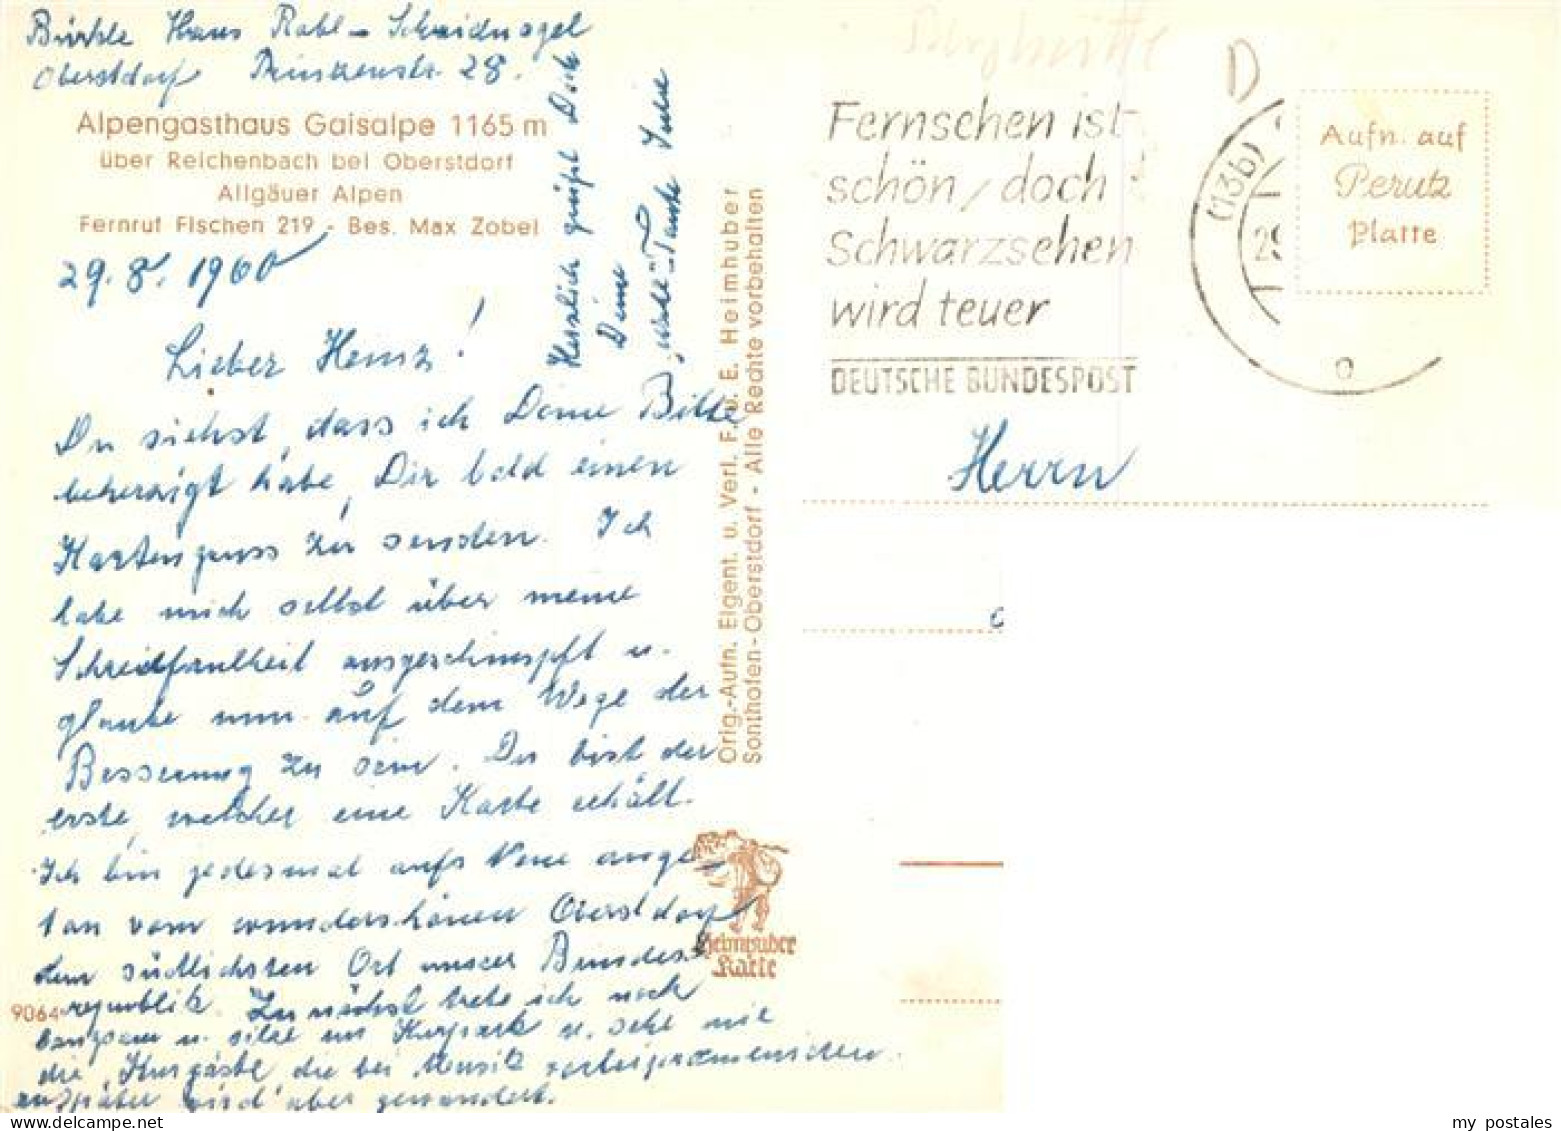 Bürkle Haus Rabl - Scheidnagel
Oberstdorf Prinzenstr. 28.
Alpengasthaus Gaisalpe 1165 m
über Reichenbach bei Oberstdorf
Allgäuer Alpen
Fernruf Fischen 219 - Bes. Max Zobel
29.8.1960
Lieber Heinz!
Du siehst, dass ich Deine Bitte
beherzigt habe, Dir bald einen
Kartengruss zu senden. Ich
habe mich selbst über meine
Schreibfaulheit ausgeschimpft u.
glaube nun auf dem Wege der
Besserung zu sein. Du bist der
erste, welcher eine Karte erhält.
Ich bin jedesmal aufs Neue ange
tan vom wunderschönen Oberstdorf
dem südlichsten Ort unserer Bundes
republik. Zunächst trete ich noch
langsam u. sitze im Kurpark u. sehe mir
die Kurgäste die bei Musik vorbeipromenieren
an, später wird aber gewandert.
Herzlich grüßt Dich
Deine
Tante
Orig.-Aufn. Eigent. u. Verl. F. u. E. Heimhuber
Sonthofen-Oberstdorf - Alle Rechte vorbehalten
Heimhuber
Karte
9064
Berghütte
D
Fernsehen ist
schön, doch
Schwarzsehen
wird teuer
DEUTSCHE BUNDESPOST
(13b)
29
Aufn. auf
Perutz
Platte
Herrn
my postales